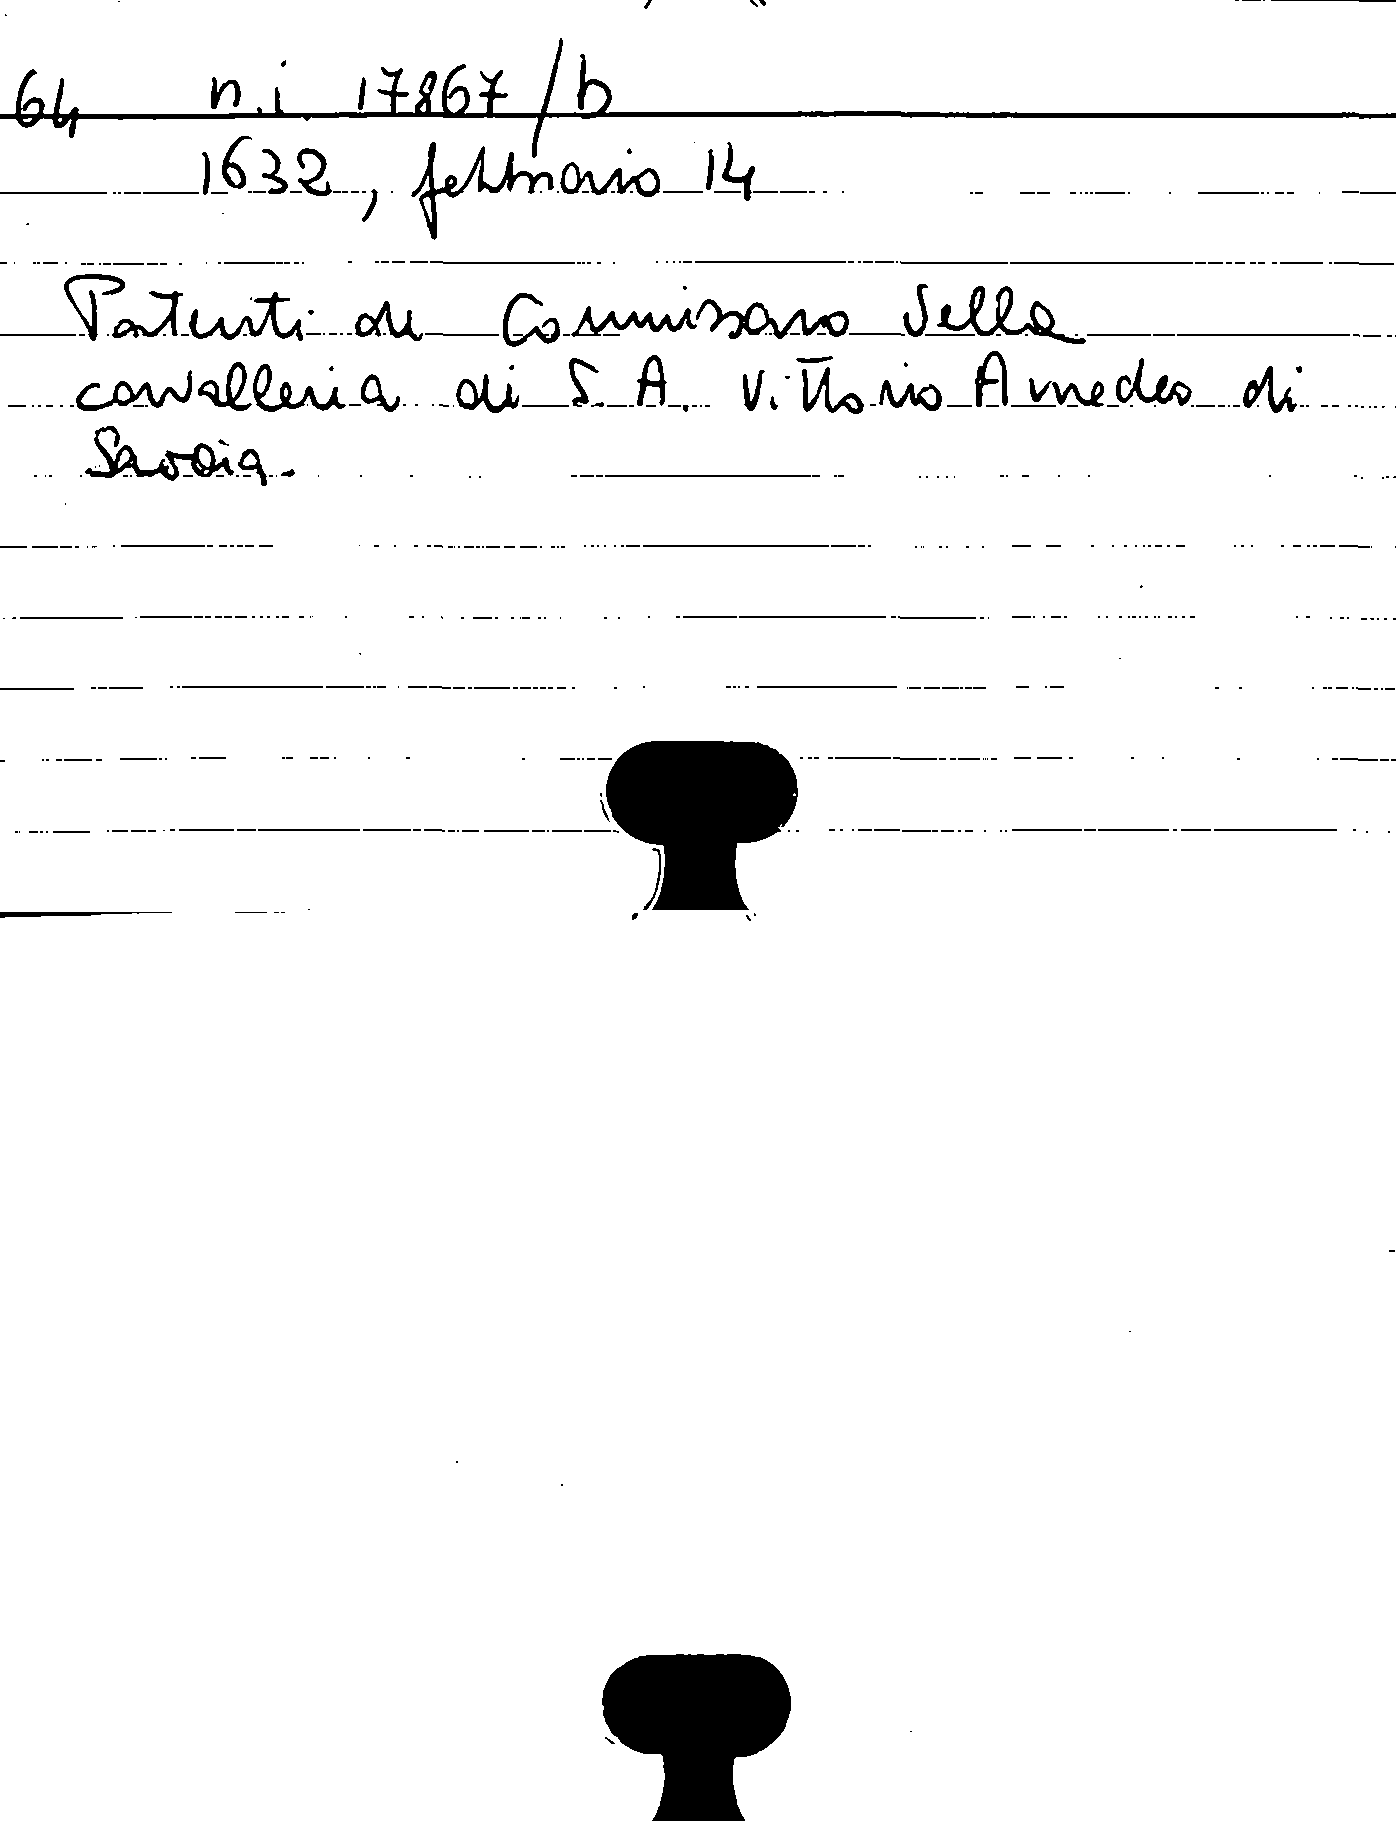 64 n.i. 17867/b
1632, febbraio 14
Patenti di Commissario della
cavalleria di S. A. Vittorio Amedeo di
Savoia.